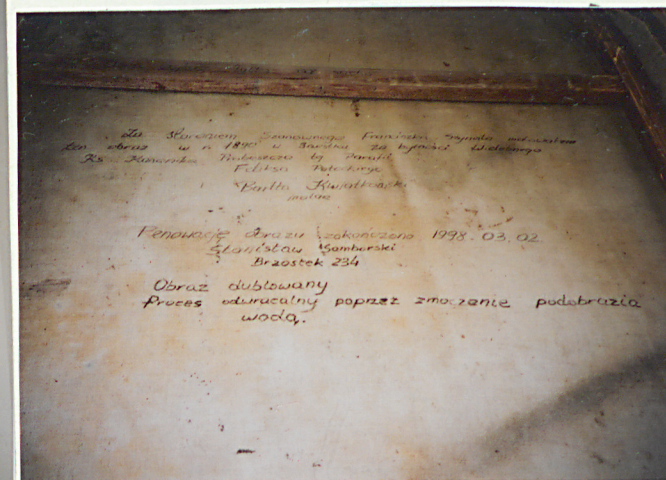 Za Staraniem Szanownego Franciszka
ten obraz w r. 1890 w za bytności Wielebnego
Ks Kanonika tej Parafii
Feliksa
Kwiatkowski
malarz
Renowację obrazu zakończono 1998.03.02.
Stanisław Samborski
Brzostek 234
Obraz dublowany
Proces odwracalny poprzez zmoczenie podobrazia
wodą.